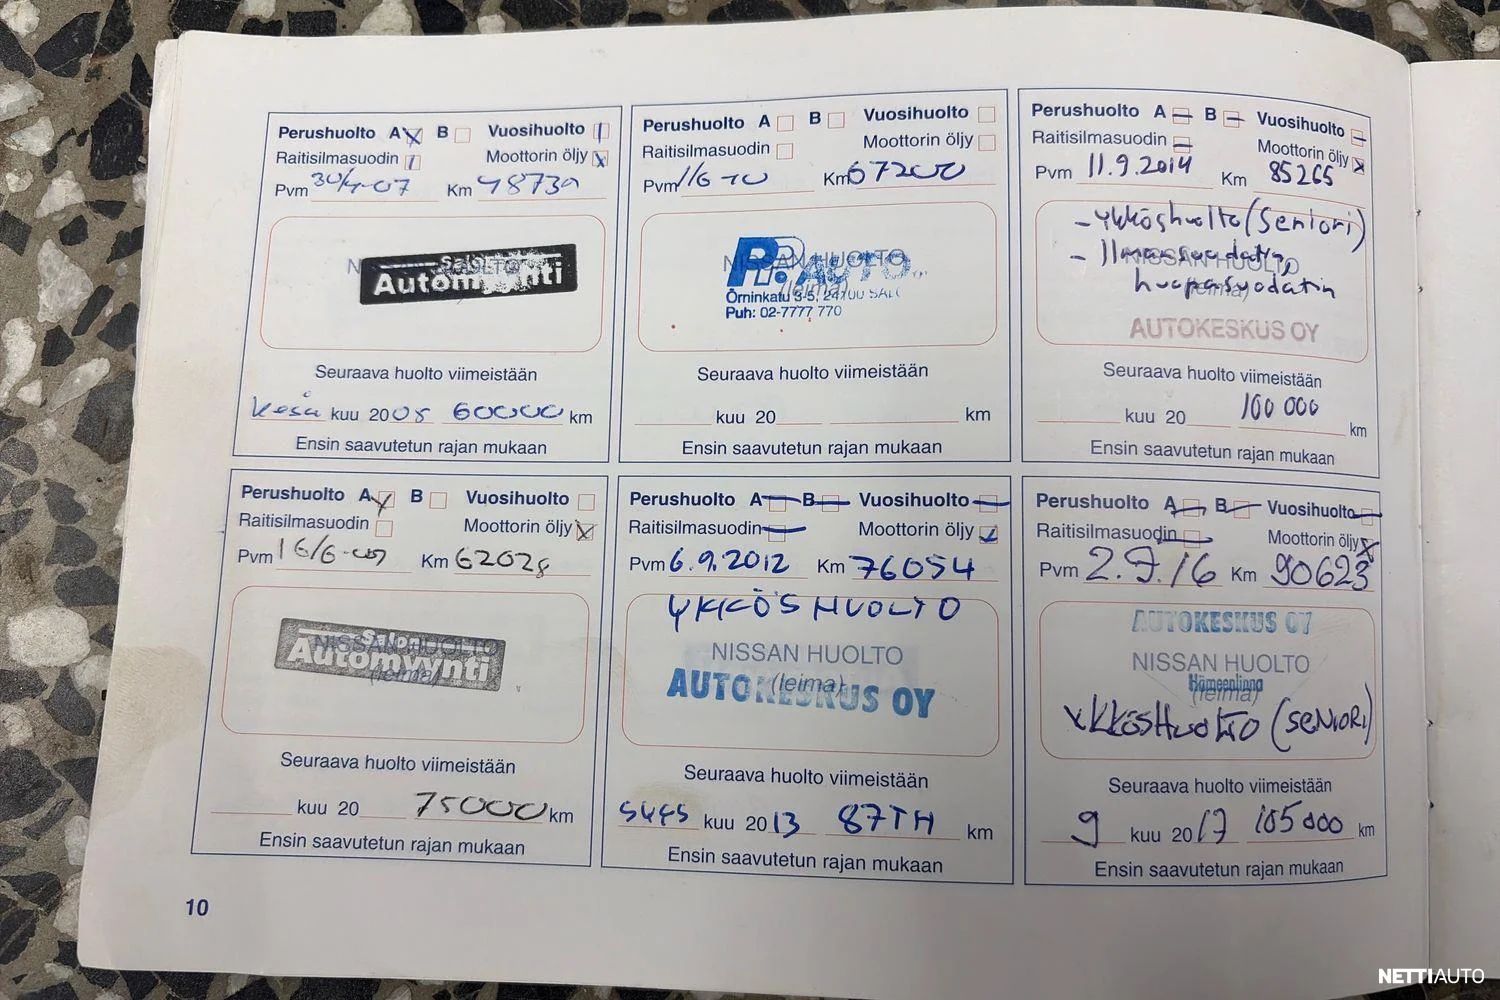 Perushuolto A B Vuosihuolto
Raitisilmasuodin Moottorin öljy
Pvm 30/4-07 Km 48730
NISSAN HUOLTO
Salon
Automyynti
Seuraava huolto viimeistään
Kesä kuu 2008 60000 km
Ensin saavutetun rajan mukaan
Perushuolto A B Vuosihuolto
Raitisilmasuodin Moottorin öljy
Pvm 1/6-10 Km 67200
NISSAN HUOLTO
(leima)
P.P. AUTO
Örninkatu 3-5, 24100 SALO
Puh: 02-7777 770
Seuraava huolto viimeistään
kuu 20 km
Ensin saavutetun rajan mukaan
Perushuolto A B Vuosihuolto
Raitisilmasuodin Moottorin öljy
Pvm 11.9.2014 Km 85265
- ykköshuolto (Seniori)
- Ilmansuodatin,
NISSAN HUOLTO
(leima)
AUTOKESKUS OY
Seuraava huolto viimeistään
kuu 20 100 000 km
Ensin saavutetun rajan mukaan
Perushuolto A B Vuosihuolto
Raitisilmasuodin Moottorin öljy
Pvm 16/6-09 Km 62028
NISSAN HUOLTO
(leima)
Salon
Automyynti
Seuraava huolto viimeistään
kuu 20 75000 km
Ensin saavutetun rajan mukaan
Perushuolto A B Vuosihuolto
Raitisilmasuodin Moottorin öljy
Pvm 6.9.2012 Km 76054
YKKÖSHUOLTO
NISSAN HUOLTO
(leima)
AUTOKESKUS OY
Seuraava huolto viimeistään
SYYS kuu 2013 87TH km
Ensin saavutetun rajan mukaan
Perushuolto A B Vuosihuolto
Raitisilmasuodin Moottorin öljy
Pvm 2.9.16 Km 90623
AUTOKESKUS OY
NISSAN HUOLTO
Hämeenlinna
(leima)
YKKÖSHUOLTO (SENIORI)
Seuraava huolto viimeistään
9 kuu 2017 105000 km
Ensin saavutetun rajan mukaan
10
NETTIAUTO